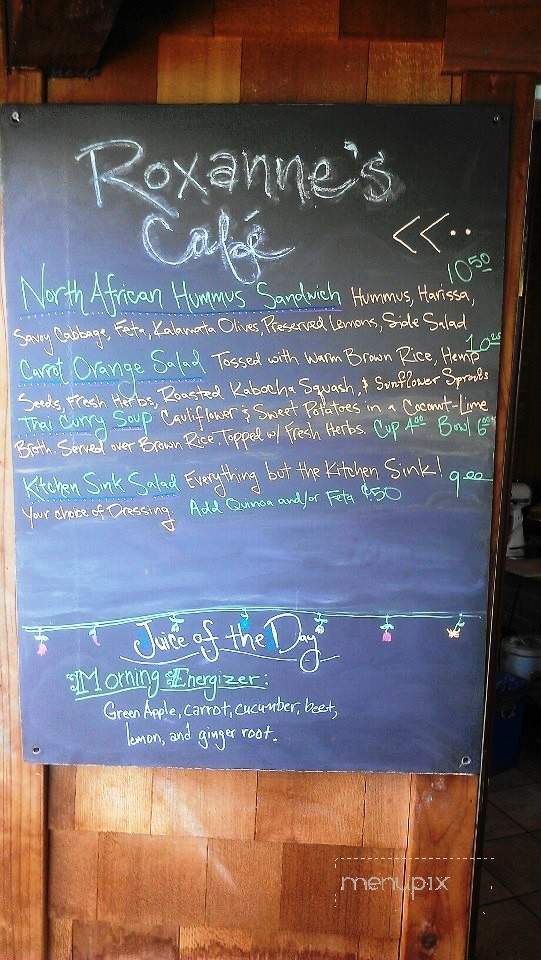 Roxanne's
Café
<<..
10.50
North African Hummus Sandwich Hummus, Harissa,
Savoy Cabbage, Feta, Kalamata Olives, Preserved Lemons, Side Salad
Carrot Orange Salad Tossed with Warm Brown Rice, Hemp
Seeds, Fresh Herbs, Roasted Kabocha Squash, & Sunflower Sprouts
Thai Curry Soup Cauliflower & Sweet Potatoes in a Coconut-Lime
Broth. Served over Brown Rice. Topped w/ Fresh Herbs. Cup 4.00 Bowl
Kitchen Sink Salad Everything but the Kitchen Sink! 9.00
Your choice of Dressing. Add Quinoa and/or Feta
Juice of the Day
Morning Energizer:
Green Apple, carrot, cucumber, beet,
lemon, and ginger root.
menupix